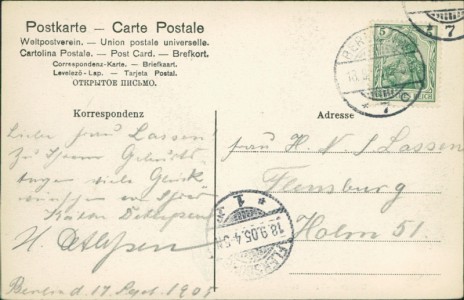 Postkarte — Carte Postale
Weltpostverein. — Union postale universelle.
Cartolina Postale. — Post Card. — Brefkort.
Correspondenz-Karte. — Briefkaart.
Levelező-Lap. — Tarjeta Postal.
ОТКРЫТОЕ ПИСЬМО.
Korrespondenz
Liebe Frau Lassen!
Zu Ihrem Geburts-
tage viele Glück-
wünsche
H. Detlefsen
Berlin d. 17 Sept. 1905
Adresse
Frau H. N. J. Lassen
Flensburg
Holm 51.
5
7
* 7
1
18.9.05.4-5
FLENSB